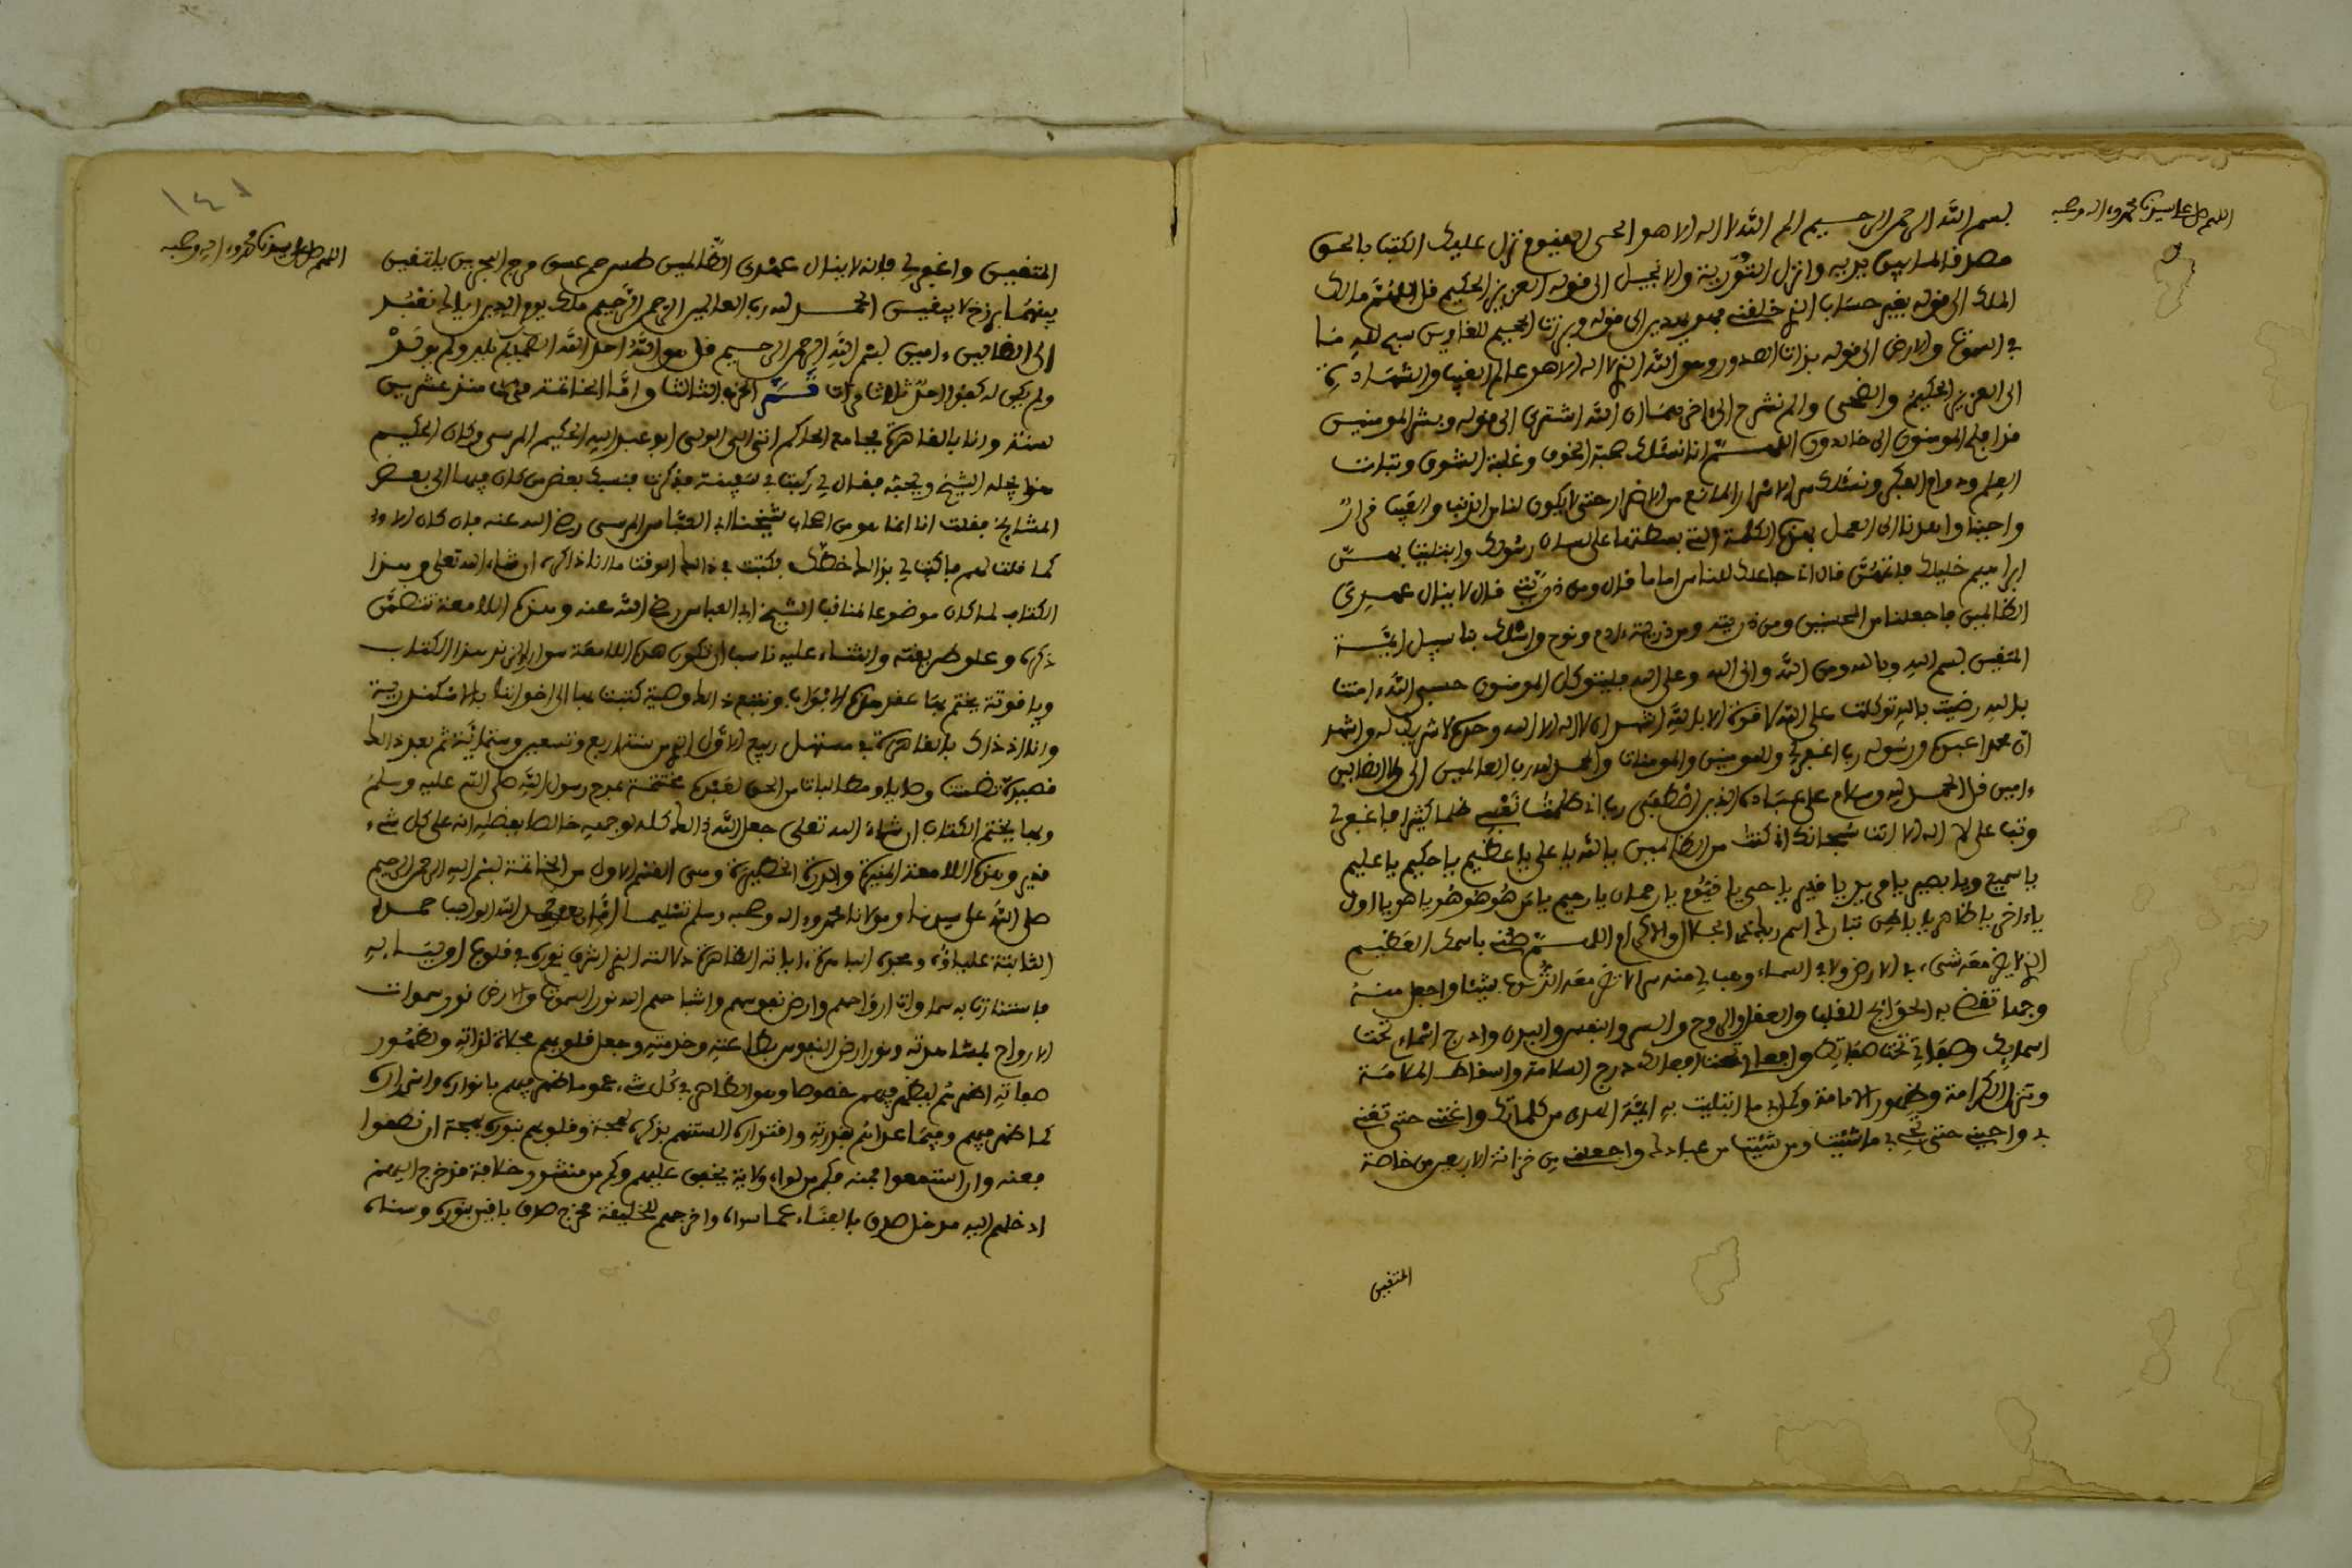 اللهم صل على سيدنا محمد وءاله وصحبه
بسم الله الرحمن الرحيم الم الله لا اله الا هو الحي القيوم نزل عليك الكتب بالحق
مصدقا لما بين يديه وانزل التورية والانجيل الى قوله العزيز الحكيم قل اللهم مالك
الملك الى قوله بغير حساب الذي خلقني فهو يهدين الى قوله وبرزت الجحيم للغاوين سبح لله ما
في السموت والارض الى قوله بذات الصدور وهو الله الذي لا اله الا هو عالم الغيب والشهادة
الى العزيز الحكيم والضحى والم نشرح الى ءاخرهما ان الله اشترى الى قوله وبشر المومنين
قد افلح المومنون الى خالدون اللهم انا نسئلك صحبة الخوف وغلبة الشوق وثبات
العلم ودوام الفكر ونسئلك سر الاسرار المانع من الاضرار حتى لا يكون لنا من الذنب والعيب قرار
واجتبنا واهدنا الى العمل بهذه الكلمة التي بسطتها على لسان رسولك وابتليت بهن
ابراهيم خليلك فاتمهن قال اني جاعلك للناس اماما قال ومن ذريتي قال لا ينال عهدي
الظالمين فاجعلنا من المحسنين ومن ذريته ومن ذرية ءادم ونوح واسلك بنا سبيل ايمة
المتقين بسم الله وبالله ومن الله والى الله وعلى الله فليتوكل المومنون حسبي الله ءامنت
بالله رضيت بالله توكلت على الله لا قوة الا بالله اشهد ان لا اله الا الله وحده لا شريك له واشهد
ان محمدا عبده ورسوله رب اغفر لي وللمومنين والمومنات والحمد لله رب العالمين الى ولا الضالين
ءامين قل الحمد لله وسلام على عباده الذين اصطفى رب اني ظلمت نفسي ظلما كثيرا فاغفر لي
وتب علي لا اله الا انت سبحانك اني كنت من الظالمين يا الله يا علي يا عظيم يا حكيم يا عليم
يا سميع ويا بصير يا مريد يا قدير يا حي يا قيوم يا رحمان يا رحيم يا من هو هو هو يا هو يا اول
يا ءاخر يا ظاهر يا باطن تبارك اسم ربك ذي الجلال والاكرام اللهم صلني باسمك العظيم
الذي لا يضر معه شيء في الارض ولا في السماء وهب لي منه سر الا تضر معه الذنوب شيئا واجعل منه
وجها تقضي به الحوائج للقلب والعقل والروح والسر والنفس والبدن وادرج اسماءي تحت
اسمايك وصفاتي تحت صفاتك وافعالي تحت افعالك درج السلامة واسقاط الملامة
وتنزل الكرامة وظهور الامامة وكن لي ما ابتليت به ايمة الهدى من كلماتك واغنني حتى تغني
بي واحيني حتى تحي بي ما شئت ومن شئت من عبادك واجعلني من خزانة الاربعين ومن خاصة
المتقين
١٤٨
اللهم صل على سيدنا محمد وءاله وصحبه
المتقين واغفر لي فانه لا ينال عهدك الظالمين طس حم عسق مرج البحرين يلتقين
بينهما برزخ لا يبغين الحمد لله رب العالمين الرحمن الرحيم ملك يوم الدين اياك نعبد
الى الضالين ءامين بسم الله الرحمن الرحيم قل هو الله احد الله الصمد لم يلد ولم يولد
ولم يكن له كفؤا احد ثلاث مرات تم الحزب الثالث واما الخاتمة منذ عشرين
سنة وانا بالقاهرة بجامع الحاكم اتى الى الولي ابو عبد الله الحكيم المرسي وكان الحكيم
هذا يجله الشيخ ويحبه فقال لي ركبت في سفينة فذكرت فنسبك بعض من كان فيها الى بعض
المشايخ فقلت انا انما هو من اصحاب شيخنا ابي العباس المرسي رضي الله عنه فان كان الامر
كما قلت لهم فاكتب لي بذالك خطك فكتبت في ذالك الوقت ما انا ذاكره ان شاء الله تعلى وهذا
الكتاب لما كان موضوعا لمناقب الشيخ ابي العباس رضي الله عنه وهذه اللامعة تتضمن
ذكره وعلو طريقته والثناء عليه ناسب ان تكون هذه اللامعة هذا الكتاب
وياقوتة يختم بها عقد هذه الابواب ونتبع ذالك وصية كتبت بها الى اخواننا بالاسكندرية
وانا اذ ذاك بالقاهرة في مستهل ربيع الاول الذي من سنة اربع وتسعين وستماية ثم بعد ذالك
قصيدة تضمنت وصايا ومطالبات من الحق لعبده مختتمة بمدح رسول الله صلى الله عليه وسلم
وبها يختم الكتاب ان شاء الله تعلى جعل الله ذالك كله لوجهه خالصا بفضله انه على كل شيء
قدير وهذه اللامعة المنيرة والدرة الخطيرة وهي القسم الاول من الخاتمة بسم الله الرحمن الرحيم
صلى الله على سيدنا ومولانا محمد وءاله وصحبه وسلم تسليما اما بعد حمد الله الواجب حمده
الثابتة علياؤه ومجده الباهرة ءاياته الظاهرة دلالته الذي اشرق نوره في قلوب اوليائه
فاستنارت به سماوات ارواحهم وارض نفوسهم واشباحهم الله نور السموت والارض نور سموات
الارواح بمشاهدته ونور ارض النفوس بطاعته وخدمته وجعل قلوبهم مجلاة لذاته وظهور
صفاته اظهرهم ليظهر فيهم خصوصا وهو الظاهر في كل شيء عموما ظهر فيهم بانواره واسراره
كما ظهر فيهم وفيما عداهم بقدرته واقتداره السنتهم بذكره لهجة وقلوبهم بنوره بهجة ان نطقوا
فعنه وان استمعوا فمنه فكم من لواء ولاية يخفق عليهم وكم من منشور خلافة قد خرج اليهم
ادخلهم اليه مدخل صدق بالفناء عما سواه واخرجهم للخليقة مخرج صدق باقين بنوره وسناه